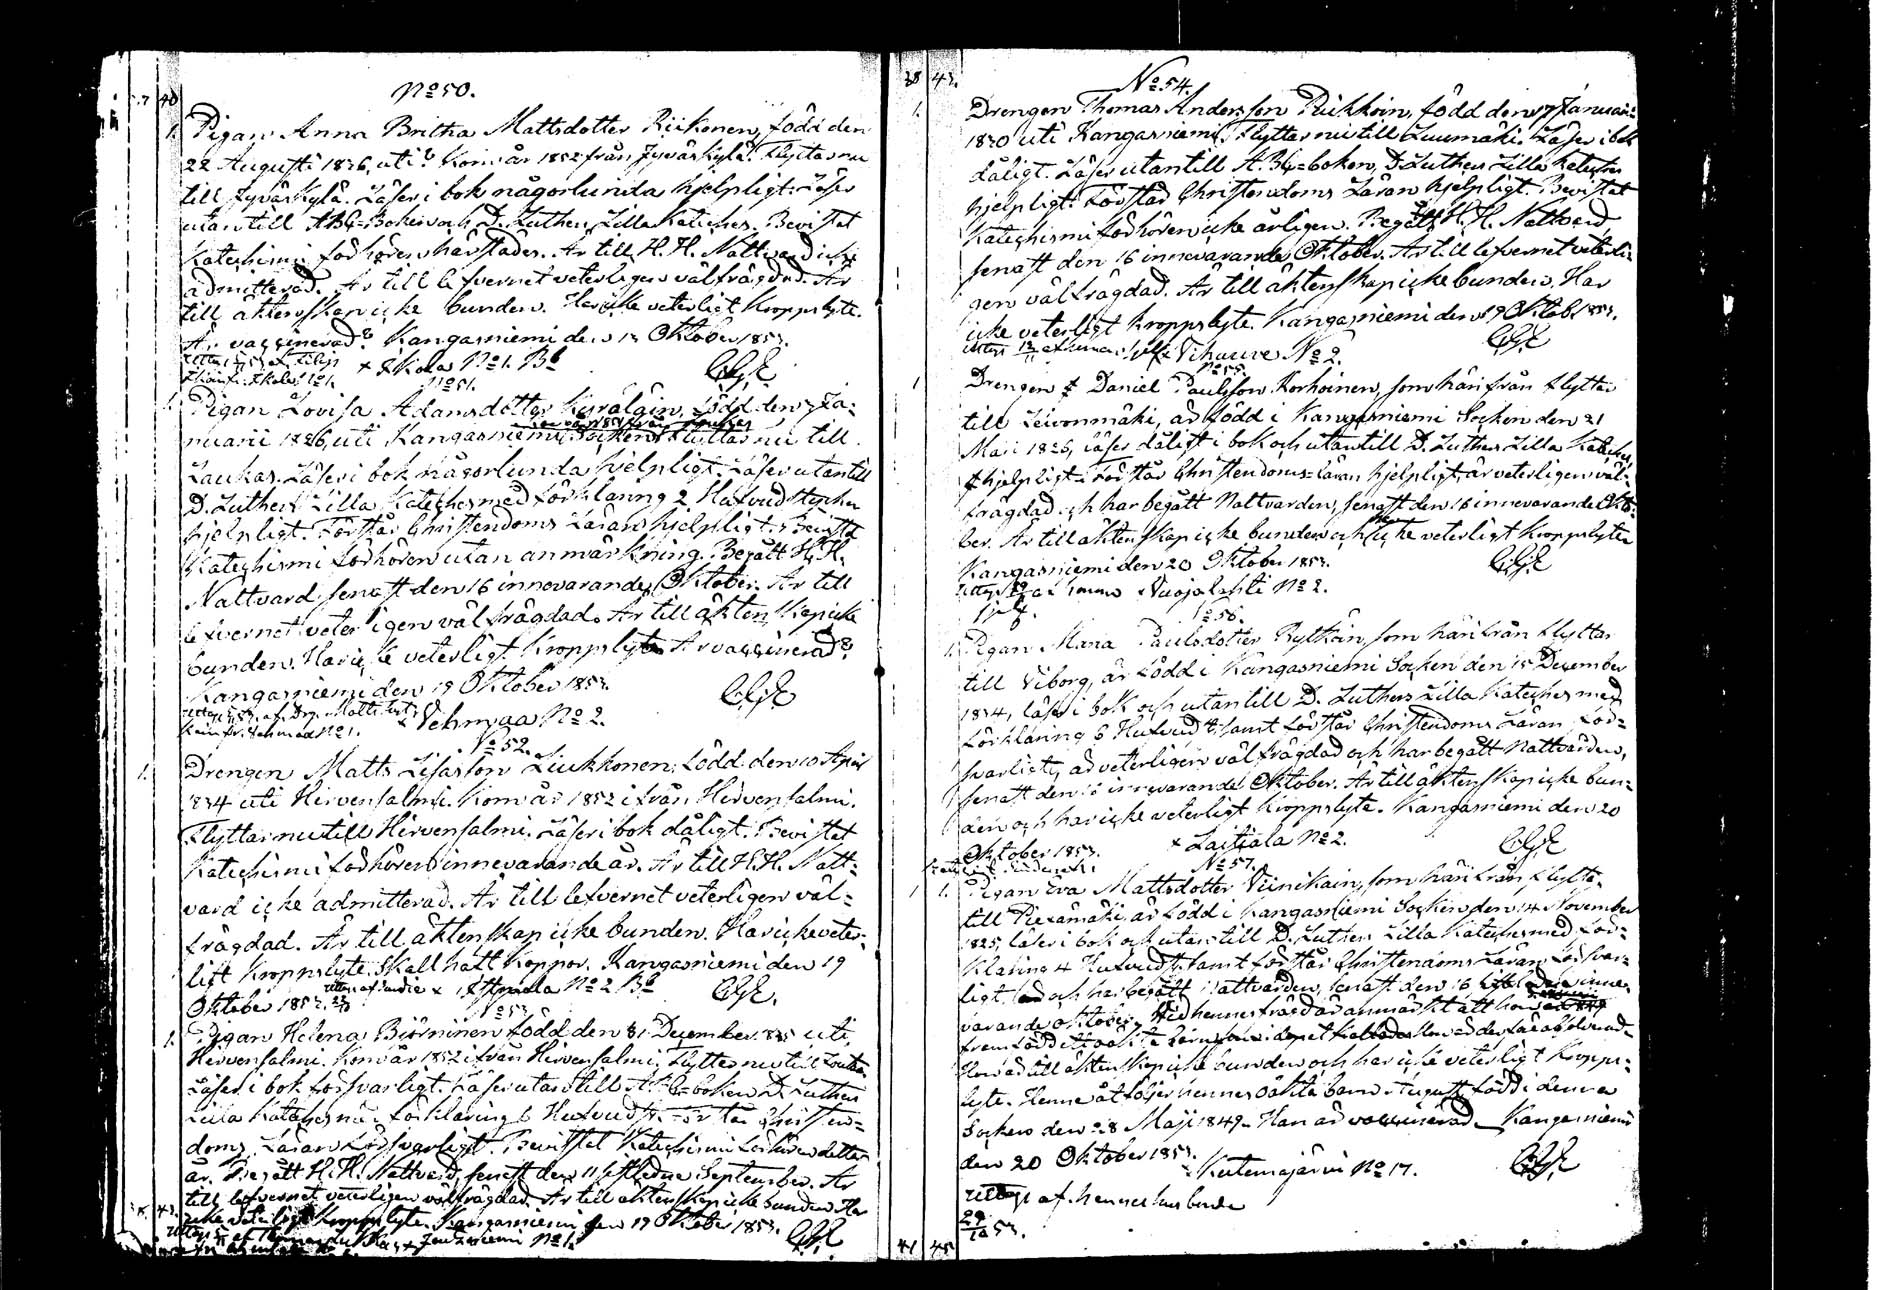 No 50.
Pigan Anna Britha Mattsdotter Riikonen, född den
22 Augusti 1836, uti? Kom år 1852 från Jyväskylä. Flyttar nu
till Jyväskylä. Läser i bok någorlunda hjelpligt. Läser
utantill ABC-Boken och D. Luthers Lilla Kateches. Bevistat
Katechismi förhören härstädes. Är till H. H. Nattvard icke
admitterad. Är till lefvernet veterligen välfrägdad. Är
till äktenskap icke bunden. Har icke veterligt Kroppslyte.
Är vaccinerad? Kangasniemi den 13 Oktober 1853.
x Ikola No 1. Bo
No 51.
Pigan Lovisa Adamsdotter Kyräläin, född den 7 Ja-
nuarii 1826, uti Kangasniemi Socken. Flyttar nu till
Laukas. Läser i bok någorlunda hjelpligt. Läser utantill
D. Luthers Lilla Kateches med förklaring 2 Hufvudstycken
hjelpligt. Förstår Christendoms Läran hjelpligt. Bevistat
Katechismi förhören utan anmärkning. Begått H. H.
Nattvard senast den 16 innevarande Oktober. Är till
lefvernet veterligen välfrägdad. Är till äktenskap icke
bunden. Har icke veterligt Kroppslyte. Är vaccinerad?
Kangasniemi den 19 Oktober 1853.
x Vehmaa No 2.
No 52.
Drengen Matts Lisasson Liukkonen, född den 10 April
1834 uti Hirvensalmi. Kom år 1852 ifrån Hirvensalmi.
Flyttar nu till Hirvensalmi. Läser i bok dåligt. Bevistat
Katechismi förhören innevarande år. Är till H. H. Natt-
vard icke admitterad. Är till lefvernet veterligen väl-
frägdad. Är till äktenskap icke bunden. Har icke veter-
ligt Kroppslyte. Skall haft Koppor. Kangasniemi den 19
Oktober 1853. No 2 Bo
No 53.
Pigan Helena Björninen född den 31 December 1835 uti
Hirvensalmi. Kom år 1852 ifrån Hirvensalmi, Flyttar nu till
Läser i bok försvarligt. Läser utantill ABC-boken D. Luthers
Lilla Kateches med förklaring 6 Hufvudst. Förstår Christen-
doms Läran försvarligt. Bevistat Katechismi förhören detta
år. Begått H. H. Nattvard, senast den 11 sistledne September. Är
till lefvernet veterligen välfrägdad. Är till äktenskap icke bunden. Har
icke veterligt Kroppslyte. Kangasniemi den 19 Oktober 1853.
No 1.
38 43.
No 54.
Drengen Thomas Andersson Puikkoin, född den 17 Januari
1830 uti Kangasniemi. Flyttar nu till Luumäki. Läser i bok
dåligt. Läser utantill ABC-boken, D. Luthers Lilla Kateches
hjelpligt. Förstår Christendoms Läran hjelpligt. Bevistat
Katechismi förhören icke årligen. Begått H. H. Nattvard,
senast den 16 innevarande Oktober. Är till lefvernet veterli-
gen välfrägdad. Är till äktenskap icke bunden. Har
icke veterligt kroppslyte. Kangasniemi den 19 Oktob. 1853.
Vihavre No 2.
No 55.
Drengen Daniel Paulsson Korhoinen, som härifrån flyttar
till Leivonmäki, är född i Kangasniemi Socken den 21
Maji 1826, läser dåligt i bok och utantill D. Luthers Lilla Kateches
hjelpligt. Förstår Christendoms-läran hjelpligt, är veterligen väl-
frägdad och har begått Nattvarden, senast den 16 innevarande Okto-
ber. Är till äktenskap icke bunden och icke veterligt Kroppslyte
Kangasniemi den 20 Oktober 1853.
Vuojalahti No 2.
No 56.
Pigan Maria Paulsdotter Rytköin, som härifrån flyttar
till Viborg, är född i Kangasniemi Socken den 15 December
1834, läser i bok och utantill D. Luthers Lilla Kateches med
förklaring 6 Hufvudst. samt förstår Christendoms Läran för-
svarligt, är veterligen välfrägdad och har begått Nattvarden,
senast den 16 innevarande Oktober. Är till äktenskap icke bun-
den och har icke veterligt Kroppslyte. Kangasniemi den 20
Oktober 1853. x Laitiala No 2.
No 57.
Pigan Eva Mattsdotter Viinikain, som härifrån flyttar
till Piexämäki, är född i Kangasniemi Socken den 14 November
1825, läser i bok och utantill D. Luthers Lilla Kateches med för-
klaring 4 Hufvudst. samt förstår Christendoms Läran försvar-
ligt, och har begått Nattvarden, senast den 16 inne-
varande Oktober. Vid hennes frägd är anmärkt att hon
framfödt ett oäkta barn
Hon är till äktenskap icke bunden och har icke veterligt Kropps-
lyte. Henne åtföljer hennes oäkta barn August född i denna
Socken den 28 Maji 1849. Han är vaccinerad. Kangasniemi
den 20 Oktober 1853.
Kutemajärvi No 17.
Uttagit af hennes husbonde
29/10 53.
41 45